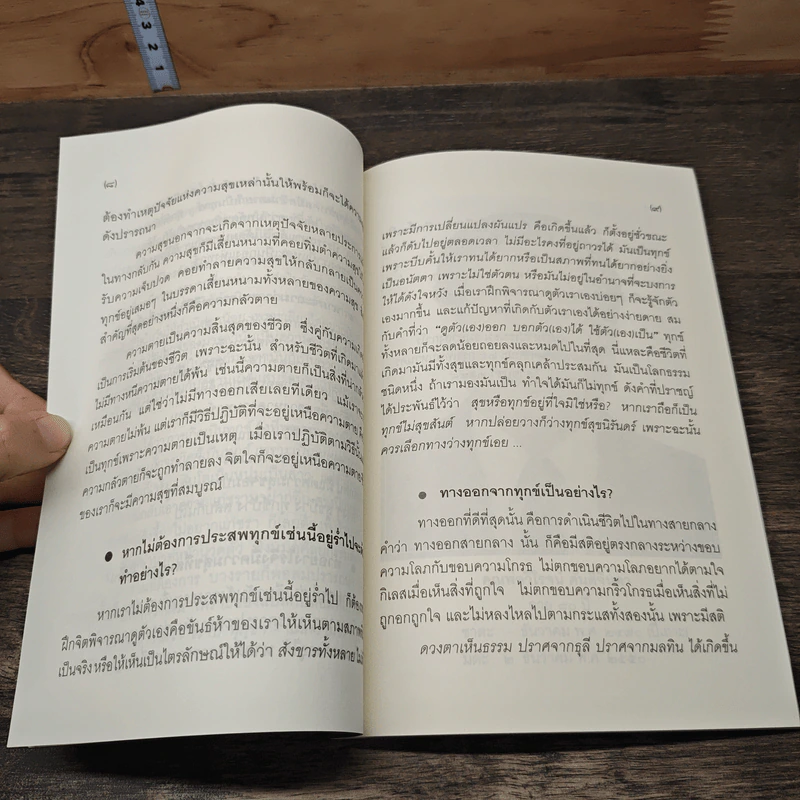 4 3 2 1
(๘)
ต้องทำเหตุปัจจัยแห่งความสุขเหล่านั้นให้พร้อมก็จะได้
ดังปรารถนา
ความสุขนอกจากจะเกิดจากเหตุปัจจัยหลายประการ
ในทางกลับกัน ความสุขก็มีเสี้ยนหนามที่คอยทิ่มตำความสุข
รับความเจ็บปวด คอยทำลายความสุขให้กลับกลายเป็น
ทุกข์อยู่เสมอๆ ในบรรดาเสี้ยนหนามทั้งหลายของความสุข
สำคัญที่สุดอย่างหนึ่งก็คือความกลัวตาย
ความตายเป็นความสิ้นสุดของชีวิต ซึ่งคู่กับความ
เป็นการเริ่มต้นของชีวิต เพราะฉะนั้น สำหรับชีวิตที่เกิดมา
ไม่มีทางหนีความตายได้พ้น เช่นนี้ความตายก็เป็นสิ่งที่น่า
เหมือนกัน แต่ใช่ว่าไม่มีทางออกเสียเลยทีเดียว แม้เรา
ความตายไม่พ้น แต่เราก็มีวิธีปฏิบัติที่จะอยู่เหนือความตาย
เป็นทุกข์เพราะความตายเป็นเหตุ เมื่อเราปฏิบัติตามวิธี
ความกลัวตายก็จะถูกทำลายลง จิตใจก็จะอยู่เหนือความตาย
ของเราก็จะมีความสุขที่สมบูรณ์
● หากไม่ต้องการประสพทุกข์เช่นนี้อยู่ร่ำไป
ทำอย่างไร?
หากเราไม่ต้องการประสพทุกข์เช่นนี้อยู่ร่ำไป ก็ต้อง
ฝึกจิตพิจารณาดูตัวเองคือขันธ์ห้าของเราให้เห็นตามสภาพ
เป็นจริง หรือให้เห็นเป็นไตรลักษณ์ให้ได้ว่า สังขารทั้งหลาย
(๙)
เพราะมีการเปลี่ยนแปลงผันแปร คือเกิดขึ้นแล้ว ก็ตั้งอยู่ชั่วขณะ
แล้วก็ดับไปอยู่ตลอดเวลา ไม่มีอะไรคงที่อยู่ถาวรได้ มันเป็นทุกข์
เพราะบีบคั้นให้เราทนได้ยากหรือเป็นสภาพที่ทนได้ยากอย่างยิ่ง
เป็นอนัตตา เพราะไม่ใช่ตัวตน หรือมันไม่อยู่ในอำนาจที่จะบงการ
ให้ได้ดังใจหวัง เมื่อเราฝึกพิจารณาดูตัวเราเองบ่อยๆ ก็จะรู้จักตัว
เองมากขึ้น และแก้ปัญหาที่เกิดกับตัวเราเองได้อย่างง่ายดาย สม
กับคำที่ว่า “ดูตัว(เอง)ออก บอกตัว(เอง)ได้ ใช้ตัว(เอง)เป็น” ทุกข์
ทั้งหลายก็จะลดน้อยถอยลงและหมดไปในที่สุด นี่แหละคือชีวิตที่
เกิดมามันมีทั้งสุขและทุกข์คลุกเคล้าประสมกัน มันเป็นโลกธรรม
ชนิดหนึ่ง ถ้าเรามองมันเป็น ทำใจได้มันก็ไม่ทุกข์ ดังคำที่ปราชญ์
ได้ประพันธ์ไว้ว่า สุขหรือทุกข์อยู่ที่ใจมิใช่หรือ? หากเราถือก็เป็น
ทุกข์ไม่สุขสันต์ หากปล่อยวางก็ว่างทุกข์สุขนิรันดร์ เพราะฉะนั้น
ควรเลือกทางว่างทุกข์เอย ...
● ทางออกจากทุกข์เป็นอย่างไร?
ทางออกที่ดีที่สุดนั้น คือการดำเนินชีวิตไปในทางสายกลาง
คำว่า ทางออกสายกลาง นั้น ก็คือมีสติอยู่ตรงกลางระหว่างขอบ
ความโลภกับขอบความโกรธ ไม่ตกขอบความโลภอยากได้ตามใจ
กิเลสเมื่อเห็นสิ่งที่ถูกใจ ไม่ตกขอบความกริ้วโกรธเมื่อเห็นสิ่งที่ไม่
ถูกอกถูกใจ และไม่หลงใหลไปตามกระแสทั้งสองนั้น เพราะมีสติ
ดวงตาเห็นธรรม ปราศจากธุลี ปราศจากมลทิน ได้เกิดขึ้น